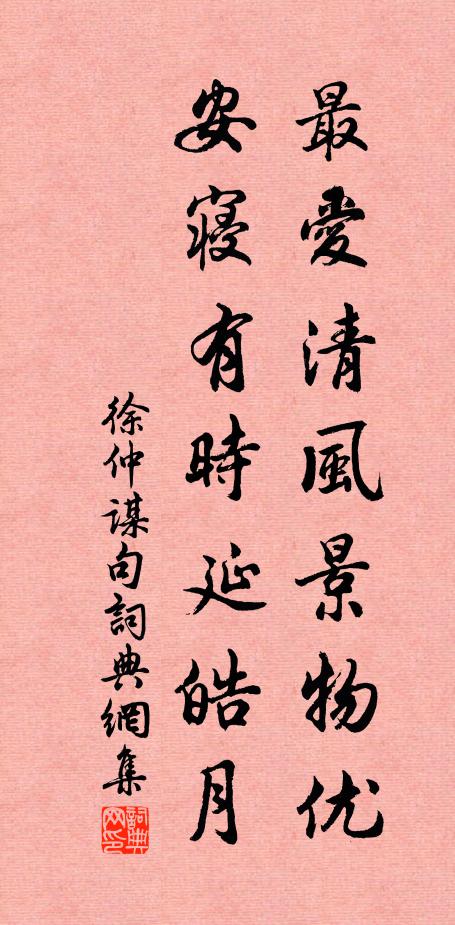 最愛清風景物优
安寢有時延皓月
徐仲谋句詞典網集
詞典网印